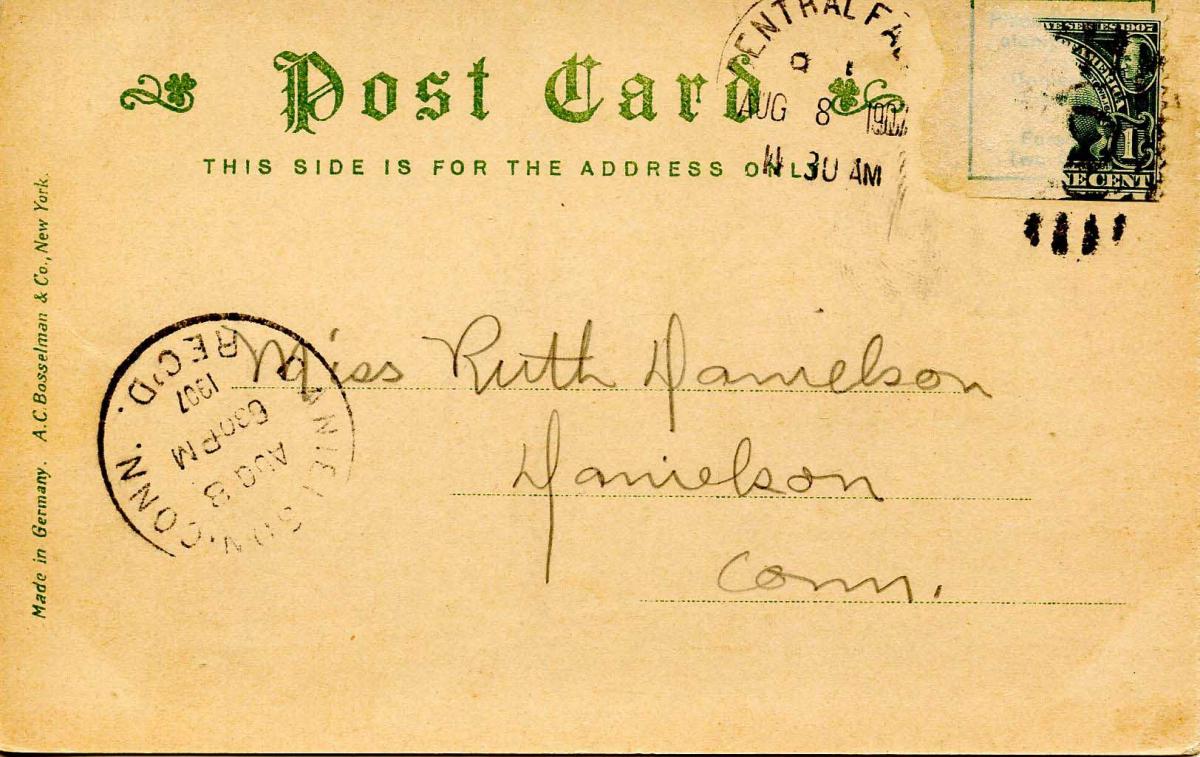 Post Card
THIS SIDE IS FOR THE ADDRESS ONLY
CENTRAL FA
AUG 8 1907
11 30 AM
SERIES 1907
OF AMERICA
1
ONE CENT
Made in Germany. A.C. Bosselman & Co., New York.
DANIELSON, CONN. REC'D.
AUG 8
630 PM
1907
Miss Ruth Danielson
Danielson
Conn.